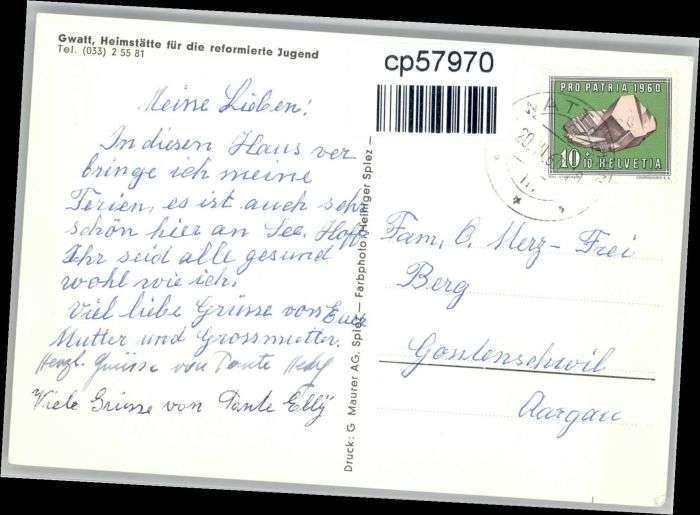 Gwatt, Heimstätte für die reformierte Jugend
Tel. (033) 2 55 81
Meine Lieben!
In diesen Haus ver
bringe ich meine
Ferien, es ist auch sehr
schön hier an See. Hoffe
Ihr seid alle gesund
wohl wie ich.
Viel liebe Grüsse von Eurer
Mutter und Grossmutter.
Herzl. Grüsse von Tante Hedy
Viele Grüsse von Tante Elly
Druck: G Maurer AG. Spiez — Farbphoto: Heiniger Spiez —
cp57970
PRO PATRIA 1960
10+10 HELVETIA
Fam. O. Merz-Frei
Berg
Gontenschwil
Aargau